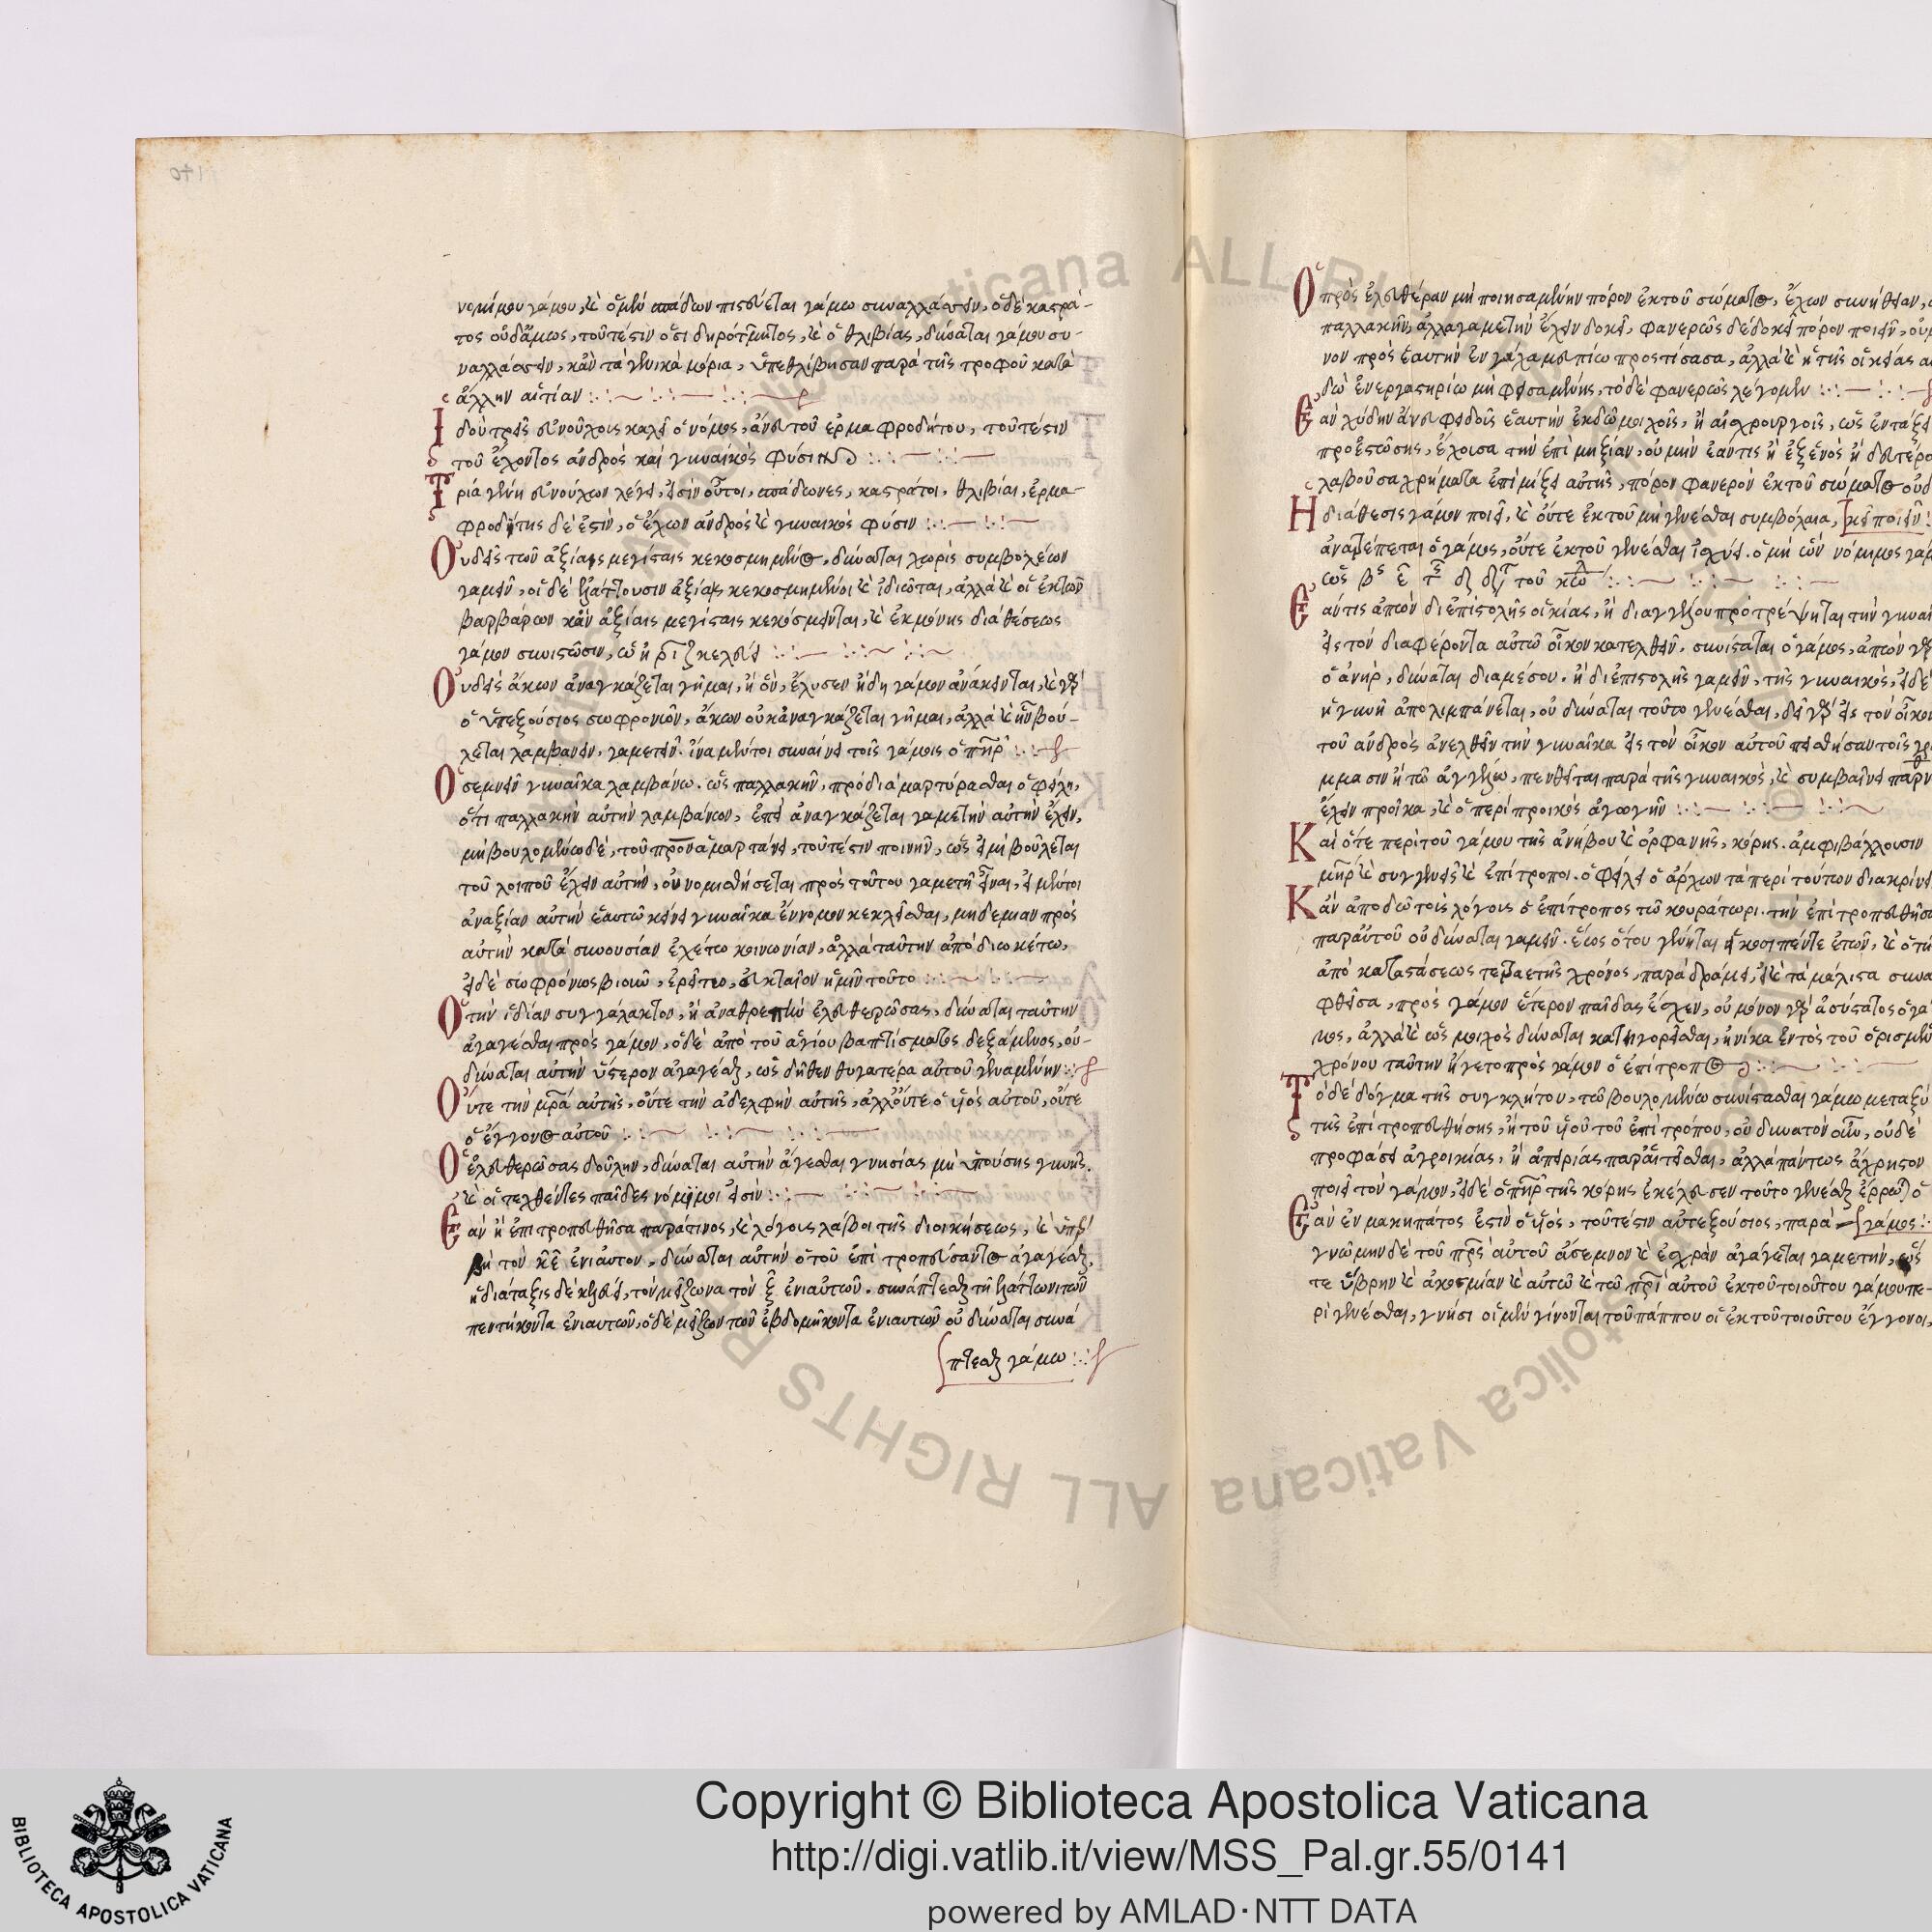 νομίμου γάμου, καὶ ὁ μὲν σπάδων πιστεύεται γάμω συναλλάσσειν, ὁ δὲ καστρά-
τος οὐδάμως, τουτέστιν ὅστι δηρότμητος, καὶ ὁ θλιβίας, δύναται γάμου συ-
ναλλάσσειν, κἂν τὰ γενικὰ μόρια, ὑπεθλίβησαν παρὰ τῆς τροφοῦ κατὰ
ἄλλην αἰτίαν
Ιδοὺ τρεῖς εὐνούχοις καλεῖ ὁ νόμος, ἄνευ τοῦ ἑρμαφροδήτου, τουτέστιν
τοῦ ἔχοντος ἀνδρὸς καὶ γυναικὸς φύσιν
Τρία γένη εὐνούχων λέγει, εἰσὶν οὗτοι, σπάδωνες, καστράτοι, θλιβίαι, ἑρμα-
φροδίτης δὲ ἐστὶν, ὁ ἔχων ἀνδρὸς καὶ γυναικὸς φύσιν
Οὐδεὶς τῶν ἀξίαις μεγίσταις κεκοσμημένος, δύναται χωρὶς συμβολέων
γαμεῖν, οἱ δὲ ἐλάττουσιν ἀξίαις κεκοσμημένοι καὶ ἰδιῶται, ἀλλὰ καὶ οἱ ἐκ τῶν
βαρβάρων κἂν ἀξίαις μεγίσταις κεκόσμηνται, καὶ ἐκ μόνης διαθέσεως
γάμον συνιστῶσιν, ὡς ἡ ριζ κελεύει
Οὐδεὶς ἄκων ἀναγκάζεται γῆμαι, ἢ ὃν, ἔλυσεν ἤδη γάμον ἀνακεῖνται, καὶ γὰρ
ὁ ὑπεξούσιος σωφρονῶν, ἄκων οὐκ ἀναγκάζεται γῆμαι, ἀλλὰ καὶ ἣν βού-
λεται λαμβάνειν, γαμετεῖν. ἵνα μέντοι συναίνει τοῖς γάμοις ὁ πηρ
Ὁ σεμνὴν γυναῖκα λαμβάνω. ὡς παλλακὴν, πρόδια μαρτύρασθαι ὀφείλει,
ὅτι παλλακὴν αὐτὴν λαμβάνων, ἐπεὶ ἀναγκάζεται γαμετὴν αὐτὴν ἔχειν,
μὴ βουλομένω δὲ, τοῦ πρὸν ἁμαρτάνει, τουτέστιν ποινὴν, ὡς εἰ μὴ βούλεται
τοῦ λοιποῦ ἔχειν αὐτὴν, οὐ νομισθήσεται πρὸς τοῦτου γαμετὴ εἶναι, εἰ μέντοι
ἀναξίαν αὐτὴν ἑαυτῶ κρίνει γυναῖκα ἔννομον κεκλῆσθαι, μηδεμίαν πρὸς
αὐτὴν κατὰ συνουσίαν ἐχέτω κοινωνίαν, ἀλλὰ ταύτην ἀποδιωκέτω,
εἰ δὲ σωφρόνως βιοιῶ, ἐρεῖτω, εὐκταῖον ἡμῖν τοῦτο
Ὁ τὴν ἰδίαν συγγάλακτον, ἢ ἀναθρεπτὴν ἐλευθερώσας, δύναται ταύτην
ἀγαγέσθαι πρὸς γάμον, ὁ δὲ ἀπὸ τοῦ ἁγίου βαπτίσματος δεξάμενος, οὐ-
δύναται αὐτὴν ὕστερον ἀγαγέσθαι, ὡς δῆθεν θυγατέρα αὐτοῦ γεναμένην
Οὔτε τὴν μρα αὐτῆς, οὔτε τὴν ἀδελφὴν αὐτῆς, ἀλλ' οὔτε ὁ υἱὸς αὐτοῦ, οὔτε
ὁ ἔγγονος αὐτοῦ
Ὁ ἐλευθερώσας δούλην, δύναται αὐτὴν ἄγεσθαι γνησίας μὴ ὑπούσης γυναικός.
καὶ οἱ τεχθέντες παῖδες νόμιμοι εἰσὶν
Ἐὰν ἡ ἐπιτροπευθῆσα παρά τινος, καὶ λόγοις λάβοι τῆς διοικήσεως, καὶ ὑπερ
βῆ τὸν κε ἐνιαυτὸν, δύναται αὐτὴν ὁ τοῦ ἐπιτροπεύσαντος ἀγαγέσθαι,
ἡ διάταξις δὲ κελεύει, τὸν μείζωνα τὸν ξ ἐνιαυτῶν. συνάπτεσθαι τῆ ἐλάττωνι τῶν
πεντήκοντα ἐνιαυτῶν, ὁ δὲ μείζων τῶν ἑβδομήκοντα ἐνιαυτῶν οὐ δύναται συνά
πτεσθαι γάμω
Ὁ πρὸς ἐλευθέραν μὴ ποιησαμένην πόρον ἐκ τοῦ σώματος, ἔχων συνήθειαν,
παλλακὴν, ἀλλὰ γαμετὴν ἔχειν δοκεῖ, φανερῶς δέδοκεῖ πόρον ποιεῖν,
νον πρὸς ἑαυτὴν ἐν γάλα μεπίω προστισασα, ἀλλὰ καὶ ἡ τῆς οἰκείας
δω ἐνεργαστηρίω μὴ φεισαμένης, τὸ δὲ φανερῶς λέγομεν
Ἐὰν χύδην ἄνευ φειδοῦς ἑαυτὴν ἐκδῶ μοιχοῖς, ἢ αἰσχρουργοῖς, ὡς ἐν τάξει
προεστώσης, ἔχοισα τὴν ἐπὶ μηξίαν, οὐ μὴν ἐάν τις ἢ ἐξ ἑνὸς ἢ δευτέρο
λαβοῦσα χρήματα ἐπιμίξει αὐτῆς, πόρον φανερὸν ἐκ τοῦ σώματος
Ἡ διάθεσις γάμον ποιεῖ, καὶ οὔτε ἐκ τοῦ μὴ γενέσθαι συμβόλαια, κεῖ ποιεῖν
ἀνατρέπεται ὁ γάμος, οὔτε ἐκ τοῦ γενέσθαι ἰσχύει. ὁ μὴ ὢν νόμιμος
Ἐάν τις ἀπὼν δι' ἐπιστολῆς οἰκίας, ἢ δι' ἀγγέλου προτρέψηται τὴν
εἰς τὸν διαφέροντα αὐτῶ οἶκον κατελθεῖν, συνίσταται ὁ γάμος, ἀπὼν γὰρ
ὁ ἀνὴρ, δύναται διαμέσου. ἢ δι' ἐπιστολῆς γαμεῖν, τῆς γυναικὸς, εἰ δὲ
ἡ γυνὴ ἀπολιμπάνεται, οὐ δύναται τοῦτο γενέσθαι, δεῖ γὰρ εἰς τὸν οἶκον
τοῦ ἀνδρὸς ἀνελθεῖν τὴν γυναῖκα εἰς τὸν οἶκον αὐτοῦ πεισθήσαν τοῖς
μμασιν ἢ τῶ ἀγγέλω, πενθεῖται παρὰ τῆς γυναικὸς, καὶ συμβαίνει
ἔχειν προῖκα, καὶ ὁ περὶ προικὸς ἀγωγὴν
Καὶ ὅτε περὶ τοῦ γάμου τῆς ἀνήβου καὶ ὀρφανῆς, κόρης. ἀμφιβάλλουσιν
μηρ καὶ συγγενεῖς καὶ ἐπίτροποι. ὀφείλει ὁ ἄρχων τὰ περὶ τούτων
Κἂν ἀποδῶ τοῖς λόγοις ὁ ἐπίτροπος τῶ κουράτωρι. τὴν
παρ' αὐτοῦ οὐ δύναται γαμεῖν. ἕως ὅτου γένηται εἴκοσι πέντε ἐτῶν,
ἀπὸ καταστάσεως τετραετὴς χρόνος, παραδράμει, καὶ τὰ μάλιστα
φθεῖσα, πρὸς γάμον ἕτερον παῖδας ἔσχεν, οὐ μόνον γὰρ ἀσύστατος
μος, ἀλλὰ καὶ ὡς μοιχὸς δύναται κατηγορεῖσθαι, ἡνίκα ἐντὸς τοῦ
χρόνου ταύτην ἤγετο πρὸς γάμον ὁ ἐπίτροπος
Τὸ δὲ δόγμα τῆς συγκλήτου, τῶ βουλομένω συνίστασθαι γάμω μεταξὺ
τῆς ἐπιτροπευθήσης, ἢ τοῦ υἱοῦ τοῦ ἐπιτρόπου, οὐ δυνατὸν οὖν, οὐδὲ
προφάσει ἀγροικίας, ἢ ἀπειρίας παραιτεῖσθαι, ἀλλὰ πάντως ἄχρηστον
ποιεῖ τὸν γάμον, εἰ δὲ ὁ πηρ τῆς κόρης ἐκέλευσεν τοῦτο γενέσθαι ἔρρωται ὁ
Ἐὰν ἐν μακηπάτος ἐστὶν ὁ υἱὸς, τουτέστιν αὐτεξούσιος, παρὰ γάμος
γνώμην δὲ τοῦ πρς αὐτοῦ ἄσεμνον καὶ ἐχρὰν ἀγάγεται γαμετὴν, ὡς
τε ὕβρην καὶ ἀκοσμίαν καὶ αὐτῶ καὶ τῶ πρι αὐτοῦ ἐκ τοῦ τοιούτου γάμου πε-
ρὶ γενέσθαι, γνήσιοι μὲν γίνονται τοῦ πάππου οἱ ἐκ τοῦ τοιούτου ἔγγονοι,
Copyright © Biblioteca Apostolica Vaticana
http://digi.vatlib.it/view/MSS_Pal.gr.55/0141
powered by AMLAD·NTT DATA
BIBLIOTECA APOSTOLICA VATICANA